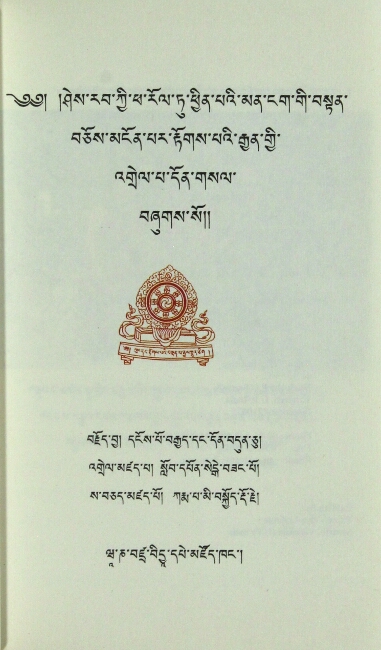 ༄༅། །ཤེས་རབ་ཀྱི་ཕ་རོལ་ཏུ་ཕྱིན་པའི་མན་ངག་གི་བསྟན་
བཅོས་མངོན་པར་རྟོགས་པའི་རྒྱན་གྱི་
འགྲེལ་པ་དོན་གསལ་
བཞུགས་སོ།།
བརྗོད་བྱ། དངོས་པོ་བརྒྱད་དང་དོན་བདུན་ཅུ།
འགྲེལ་མཛད་པ། སློབ་དཔོན་སེངྒེ་བཟང་པོ།
ས་བཅད་མཛད་པོ། ཀརྨ་པ་མི་བསྐྱོད་རྡོ་རྗེ།
ཝཱ་ཎ་བཛྲ་བིདྱཱ་དཔེ་མཛོད་ཁང་།